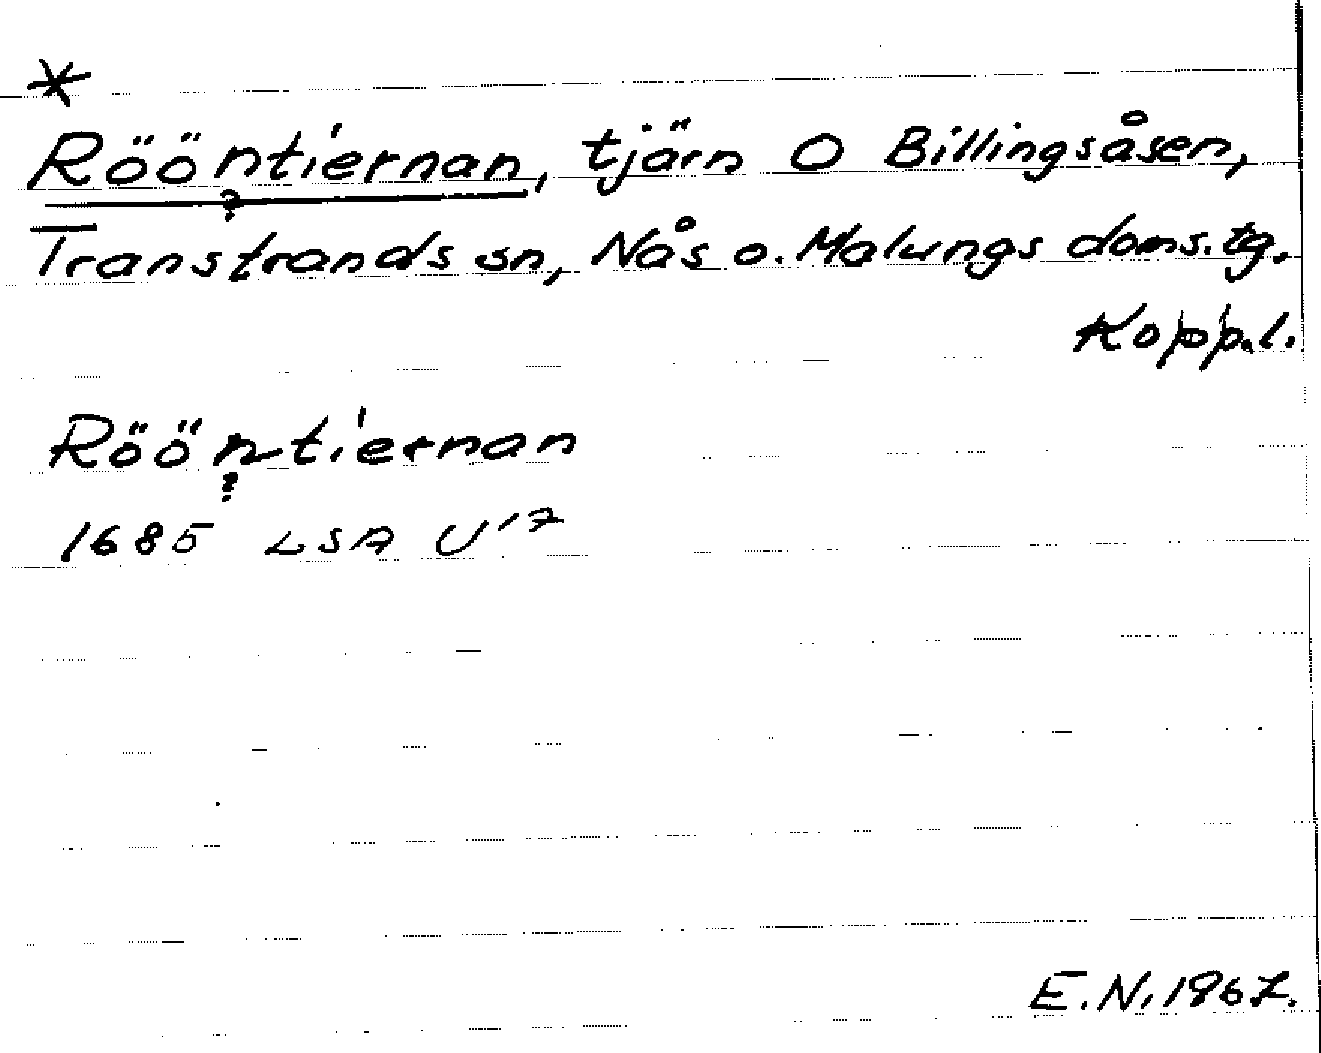 *
Rööntiernan, tjärn O Billingsåsen,
?
Transtrands sn, Nås o. Malungs doms.tg.
Kopp.l.
Rööntiernan
?
1685 LSA U'7
E.N. 1967.